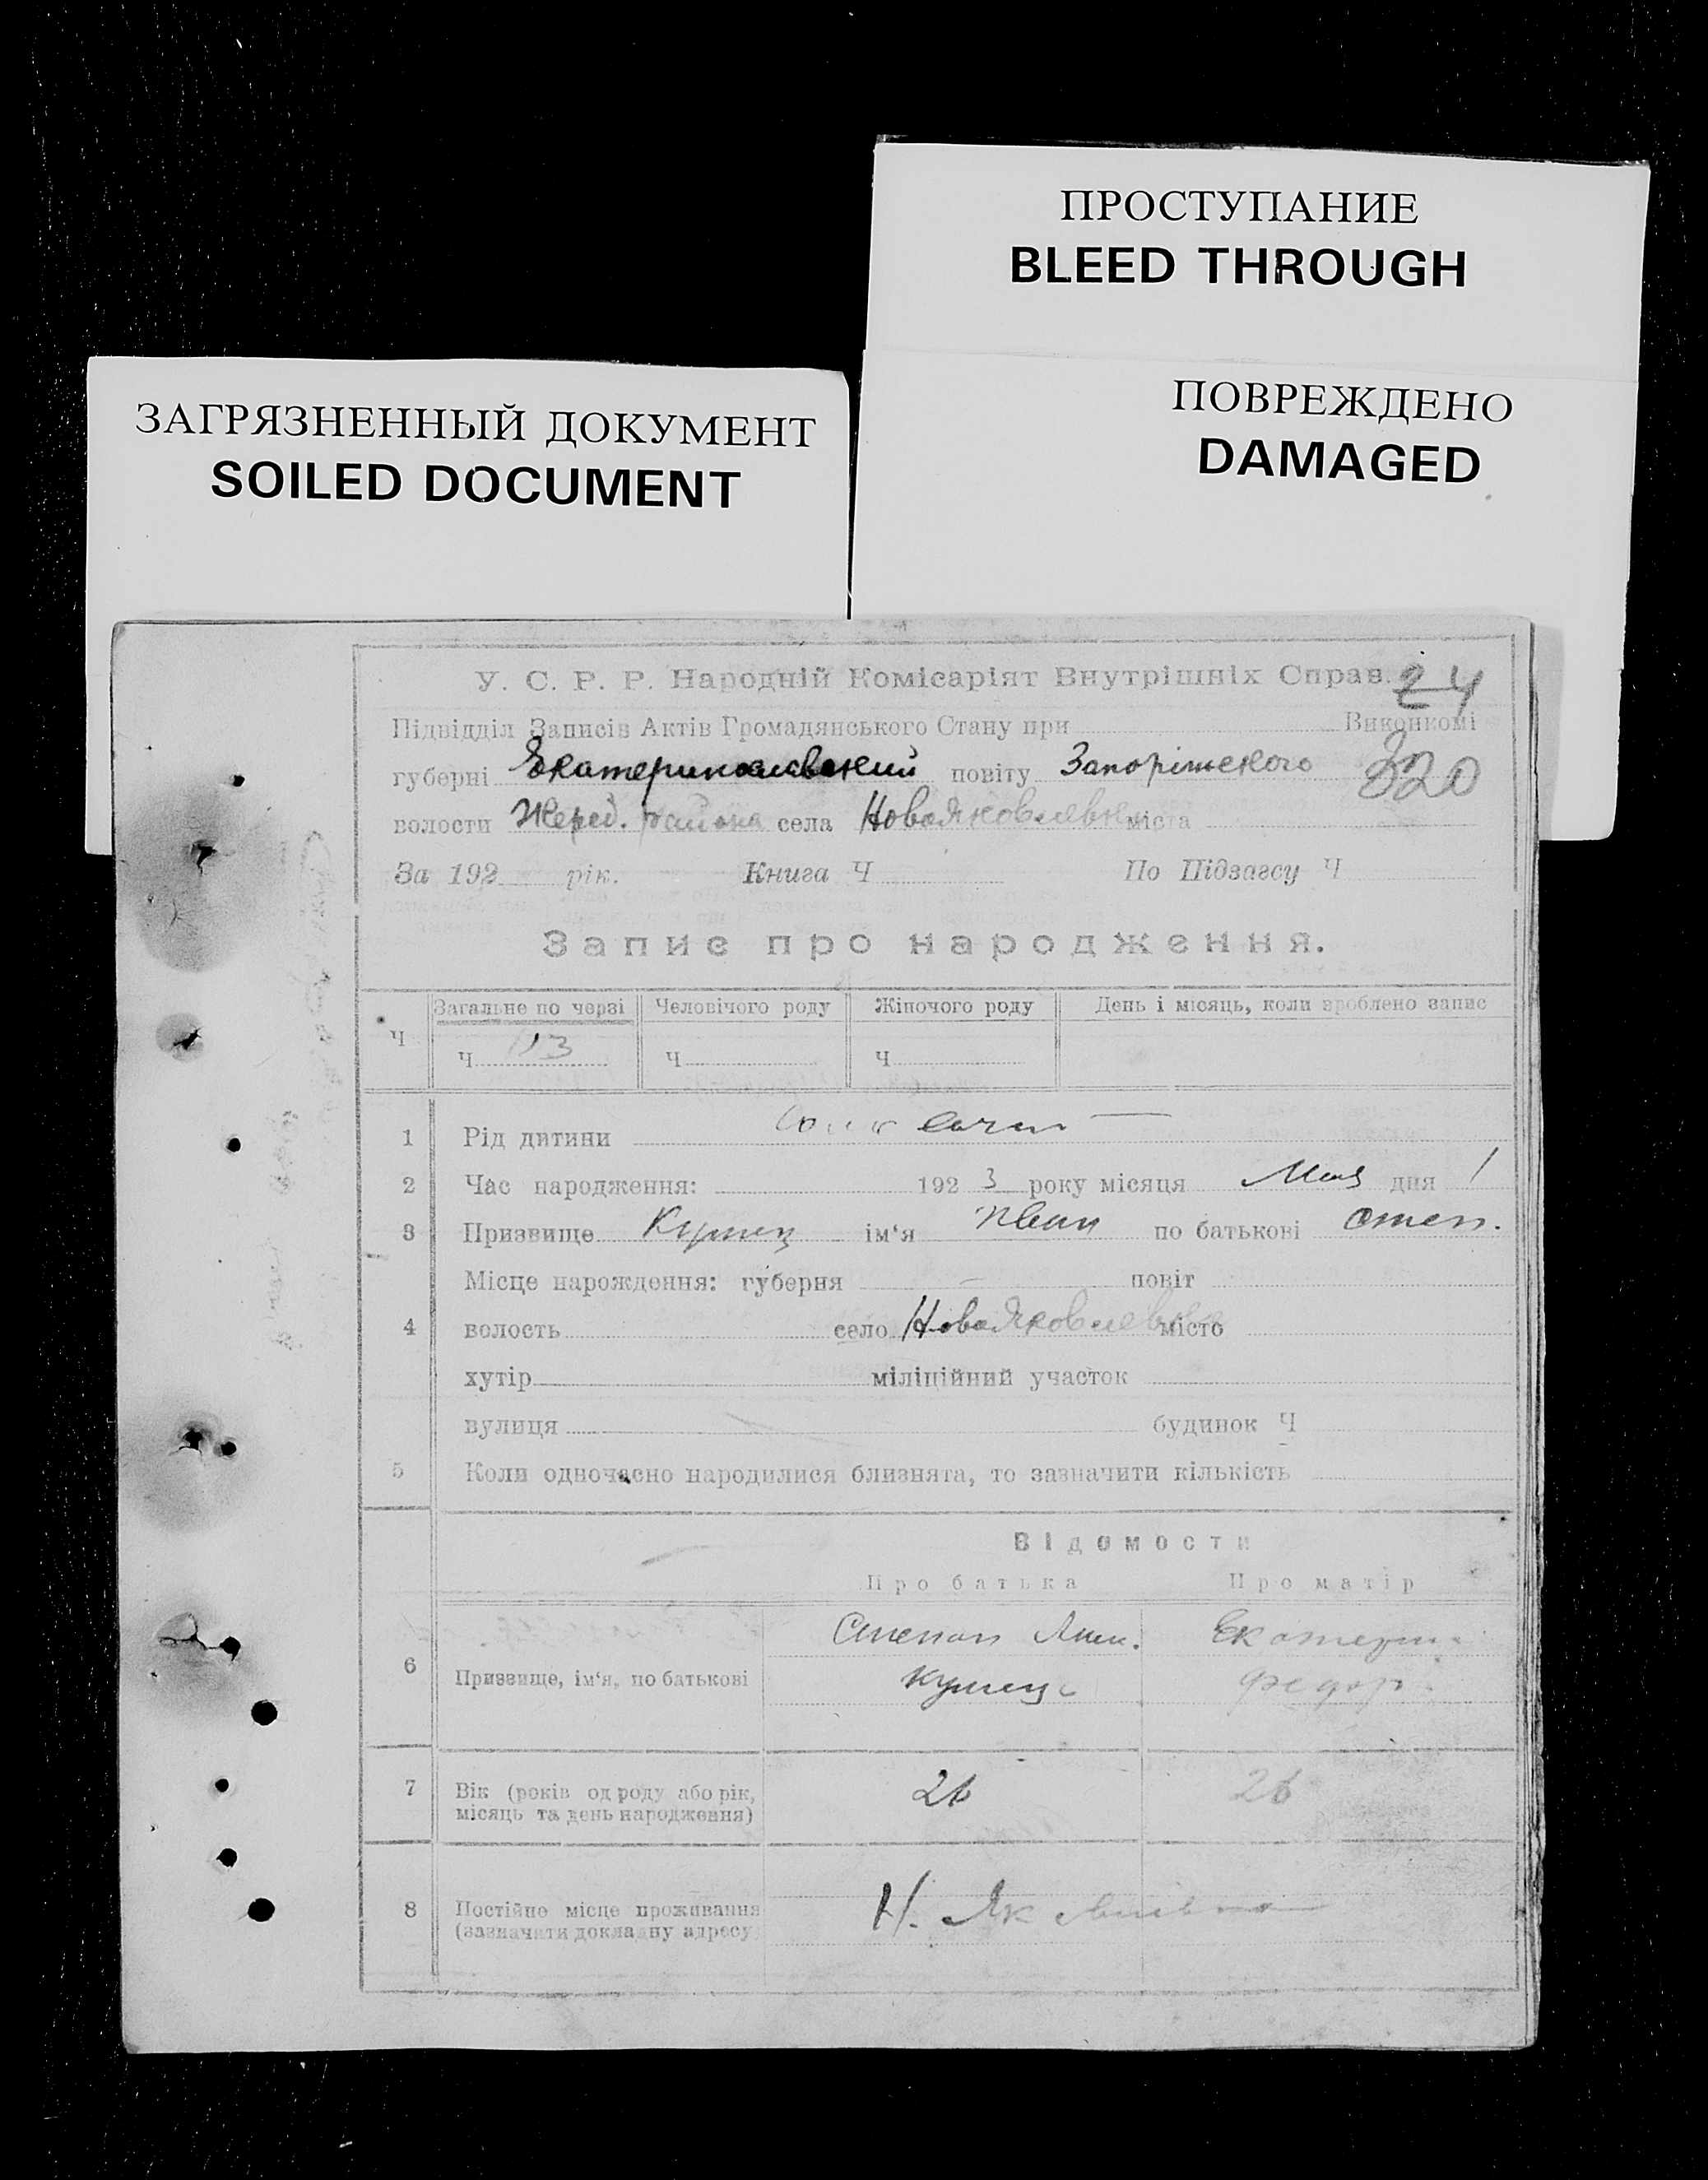 ПРОСТУПАНИЕ
BLEED THROUGH
ПОВРЕЖДЕНО
DAMAGED
ЗАГРЯЗНЕННЫЙ ДОКУМЕНТ
SOILED DOCUMENT
У. С. Р. Р. Народній Комісаріят Внутрішніх Справ. 24
Підвідділ Записів Актів Громадянського Стану при Виконкомі
губерні Екатеринославский повіту Запоріжского 320
волости Жеред. района села Новояковлевка міста
За 192 рік. Книга Ч По Підзагсу Ч
Запис про народження.
Загальне по черзі Человічого роду Жіночого роду День і місяць, коли зроблено запис
Ч Ч Ч Ч
1 Рід дитини
2 Час народження: 192 3 року місяця Мая дня 1
3 Призвище ім‘я Иван по батькові Степ.
Місце нарождення: губерня повіт
4 волость село Новояковлевка місто
хутір міліційний участок
вулиця будинок Ч
5 Коли одночасно народилися близнята, то зазначити кількість
Відомости
Про батька Про матір
Степан Екатерин
6 Призвище, ім‘я, по батькові Федор
7 Вік (років од роду або рік, 26 26
місяць та день народження)
8 Постійне місце проживання Н.
(зазначити докладну адресу